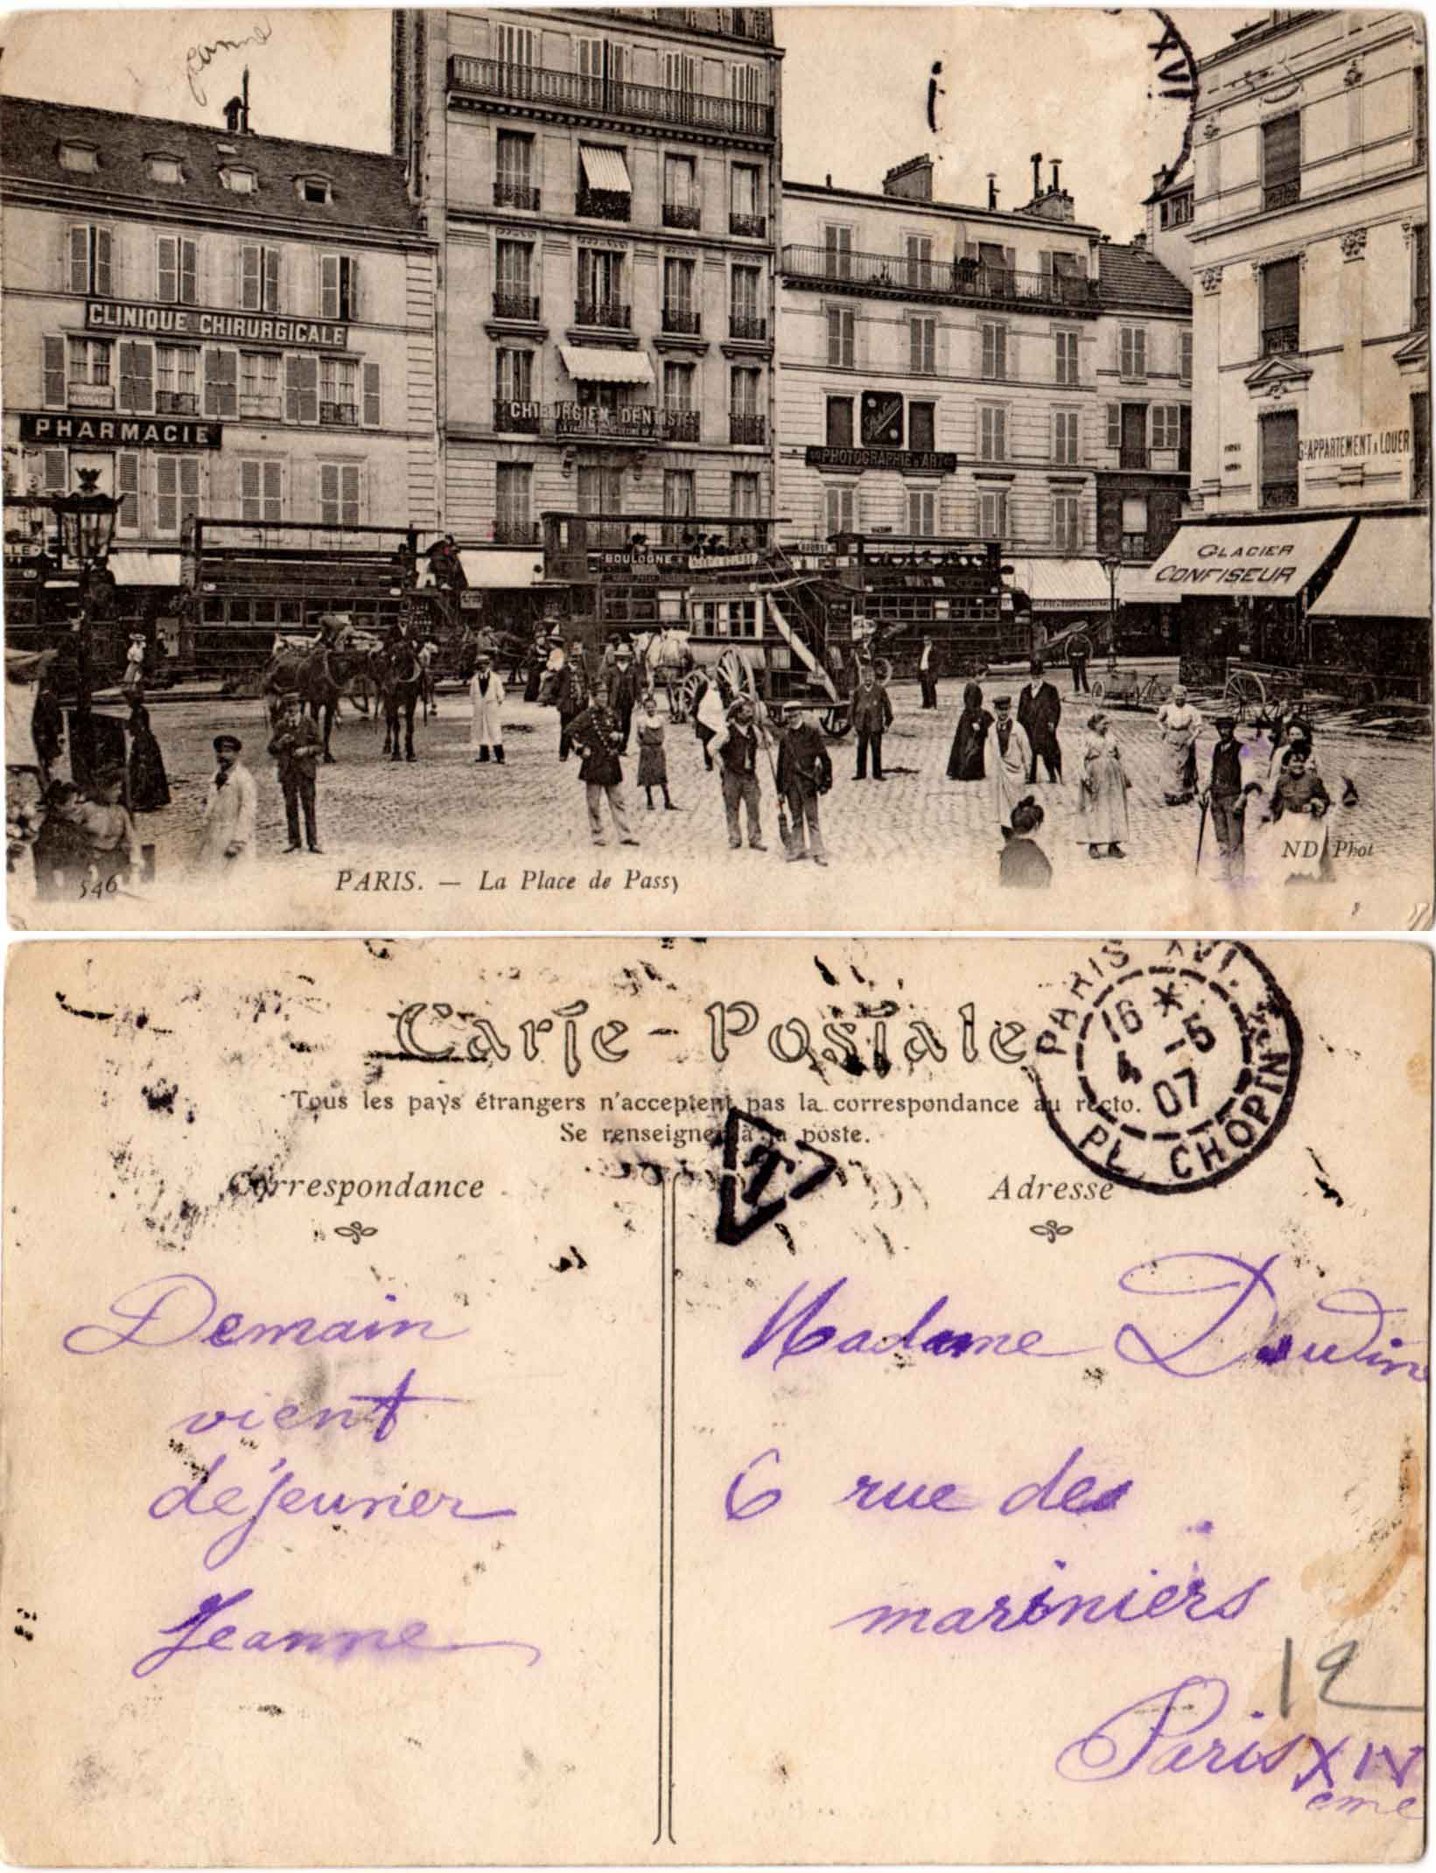 Jeanne
XVI
CLINIQUE CHIRURGICALE
PHARMACIE
CHIRURGIEN-DENTISTE
PHOTOGRAPHIE D'ART
Gd APPARTEMENT A LOUER
BOULOGNE
GLACIER
CONFISEUR
546
PARIS. — La Place de Passy
ND Phot
Carte-Postale
Tous les pays étrangers n'acceptent pas la correspondance au recto.
Se renseigner à la poste.
PARIS XVI.
16 * 5
4
07
PL. CHOPIN
T
Correspondance
Adresse
Demain
vient
déjeuner
Jeanne
Madame Doudin
6 rue des
mariniers
12
Paris XIV
eme